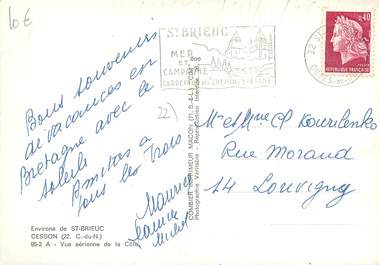 10€
ST BRIEUC
MER
ET
CAMPAGNE
CARREFOUR DU CHEMIN BRETON
22 ST
0,40
REPUBLIQUE FRANÇAISE
Bons souvenirs
de vacances en
Bretagne avec le
soleil
Amitiés à
tous les trois
Maurice
Jeanine
Michel
22)
COMBIER IMPRIMEUR MACON (71. S.-&-L.)
Photographie Véritable - Reproduction Interdite
Mr et Mme Cl Kourilenko
Rue Morand
14 Louvigny
Environs de ST-BRIEUC
CESSON (22. C.-du-N.)
95-2 A - Vue aérienne de la Côte